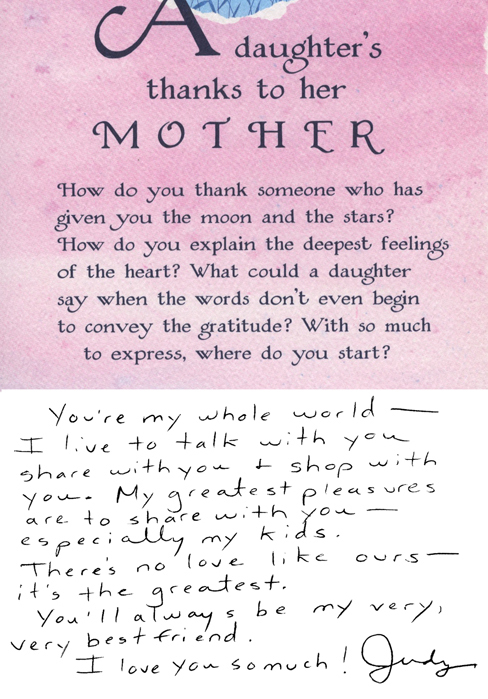 A daughter's
thanks to her
MOTHER
How do you thank someone who has
given you the moon and the stars?
How do you explain the deepest feelings
of the heart? What could a daughter
say when the words don't even begin
to convey the gratitude? With so much
to express, where do you start?
You're my whole world —
I live to talk with you
share with you & shop with
you. My greatest pleasures
are to share with you —
especially my kids.
There's no love like ours —
it's the greatest.
You'll always be my very,
very best friend.
I love you so much! Judy